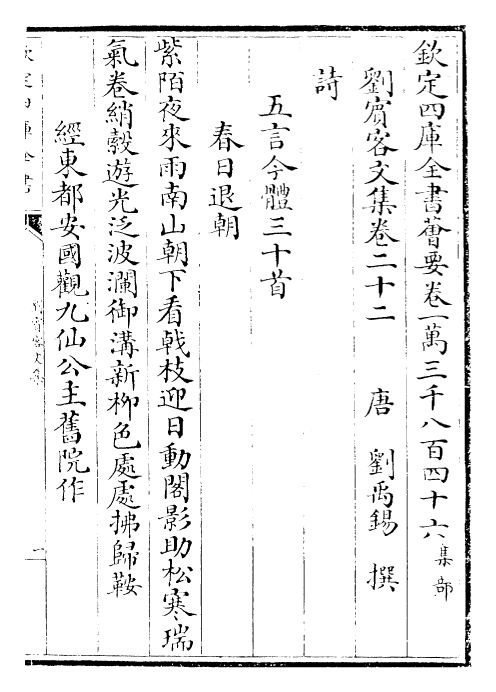 欽定四庫全書薈要卷一萬三千八百四十六集部
劉賓客文集卷二十二　唐　劉禹錫　撰
詩
五言今體三十首
春日退朝
紫陌夜來雨南山朝下看戟枝迎日動閣影助松寒瑞
氣卷綃縠遊光泛波瀾御溝新柳色處處拂歸鞍
經東都安國觀九仙公主舊院作
一